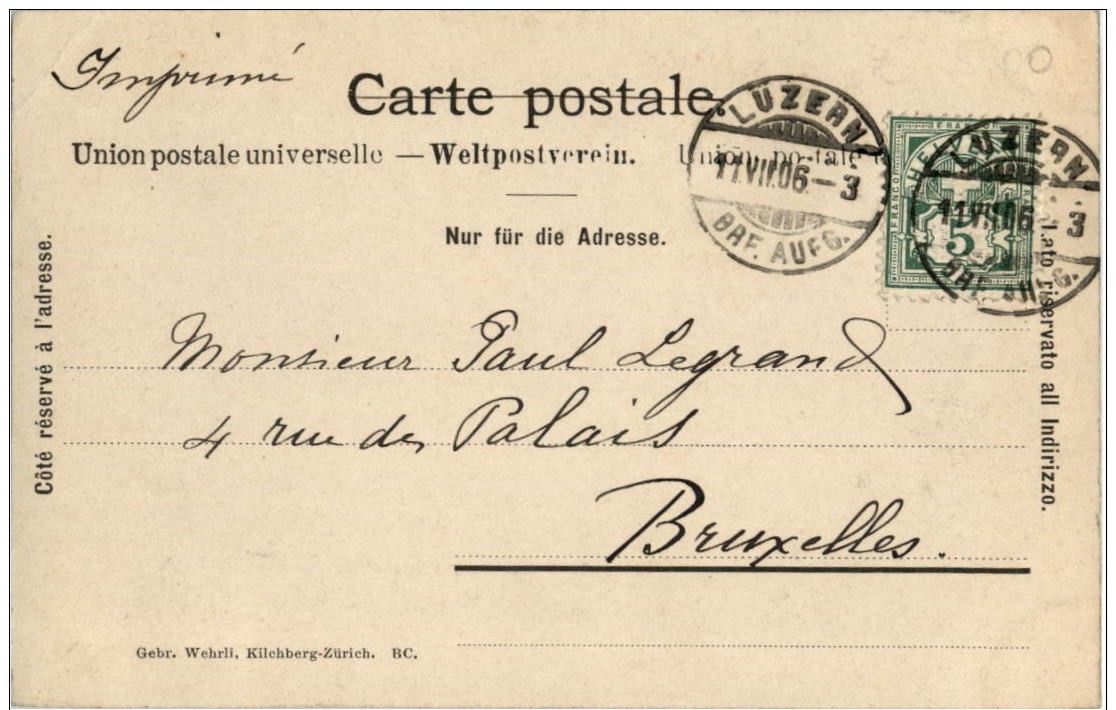 Imprimé
Carte postale.
Union postale universelle — Weltpostverein. Union postale
Nur für die Adresse.
LUZERN
11.VII.06–3
BRF. AUFG.
FRANCO
HELVETIA
5
LUZERN
11.VII.06–3
BRF. AUFG.
Côté réservé à l'adresse.
Lato riservato all Indirizzo.
Monsieur Paul Legrand
4 rue des Palais
Bruxelles.
Gebr. Wehrli, Kilchberg-Zürich. BC.